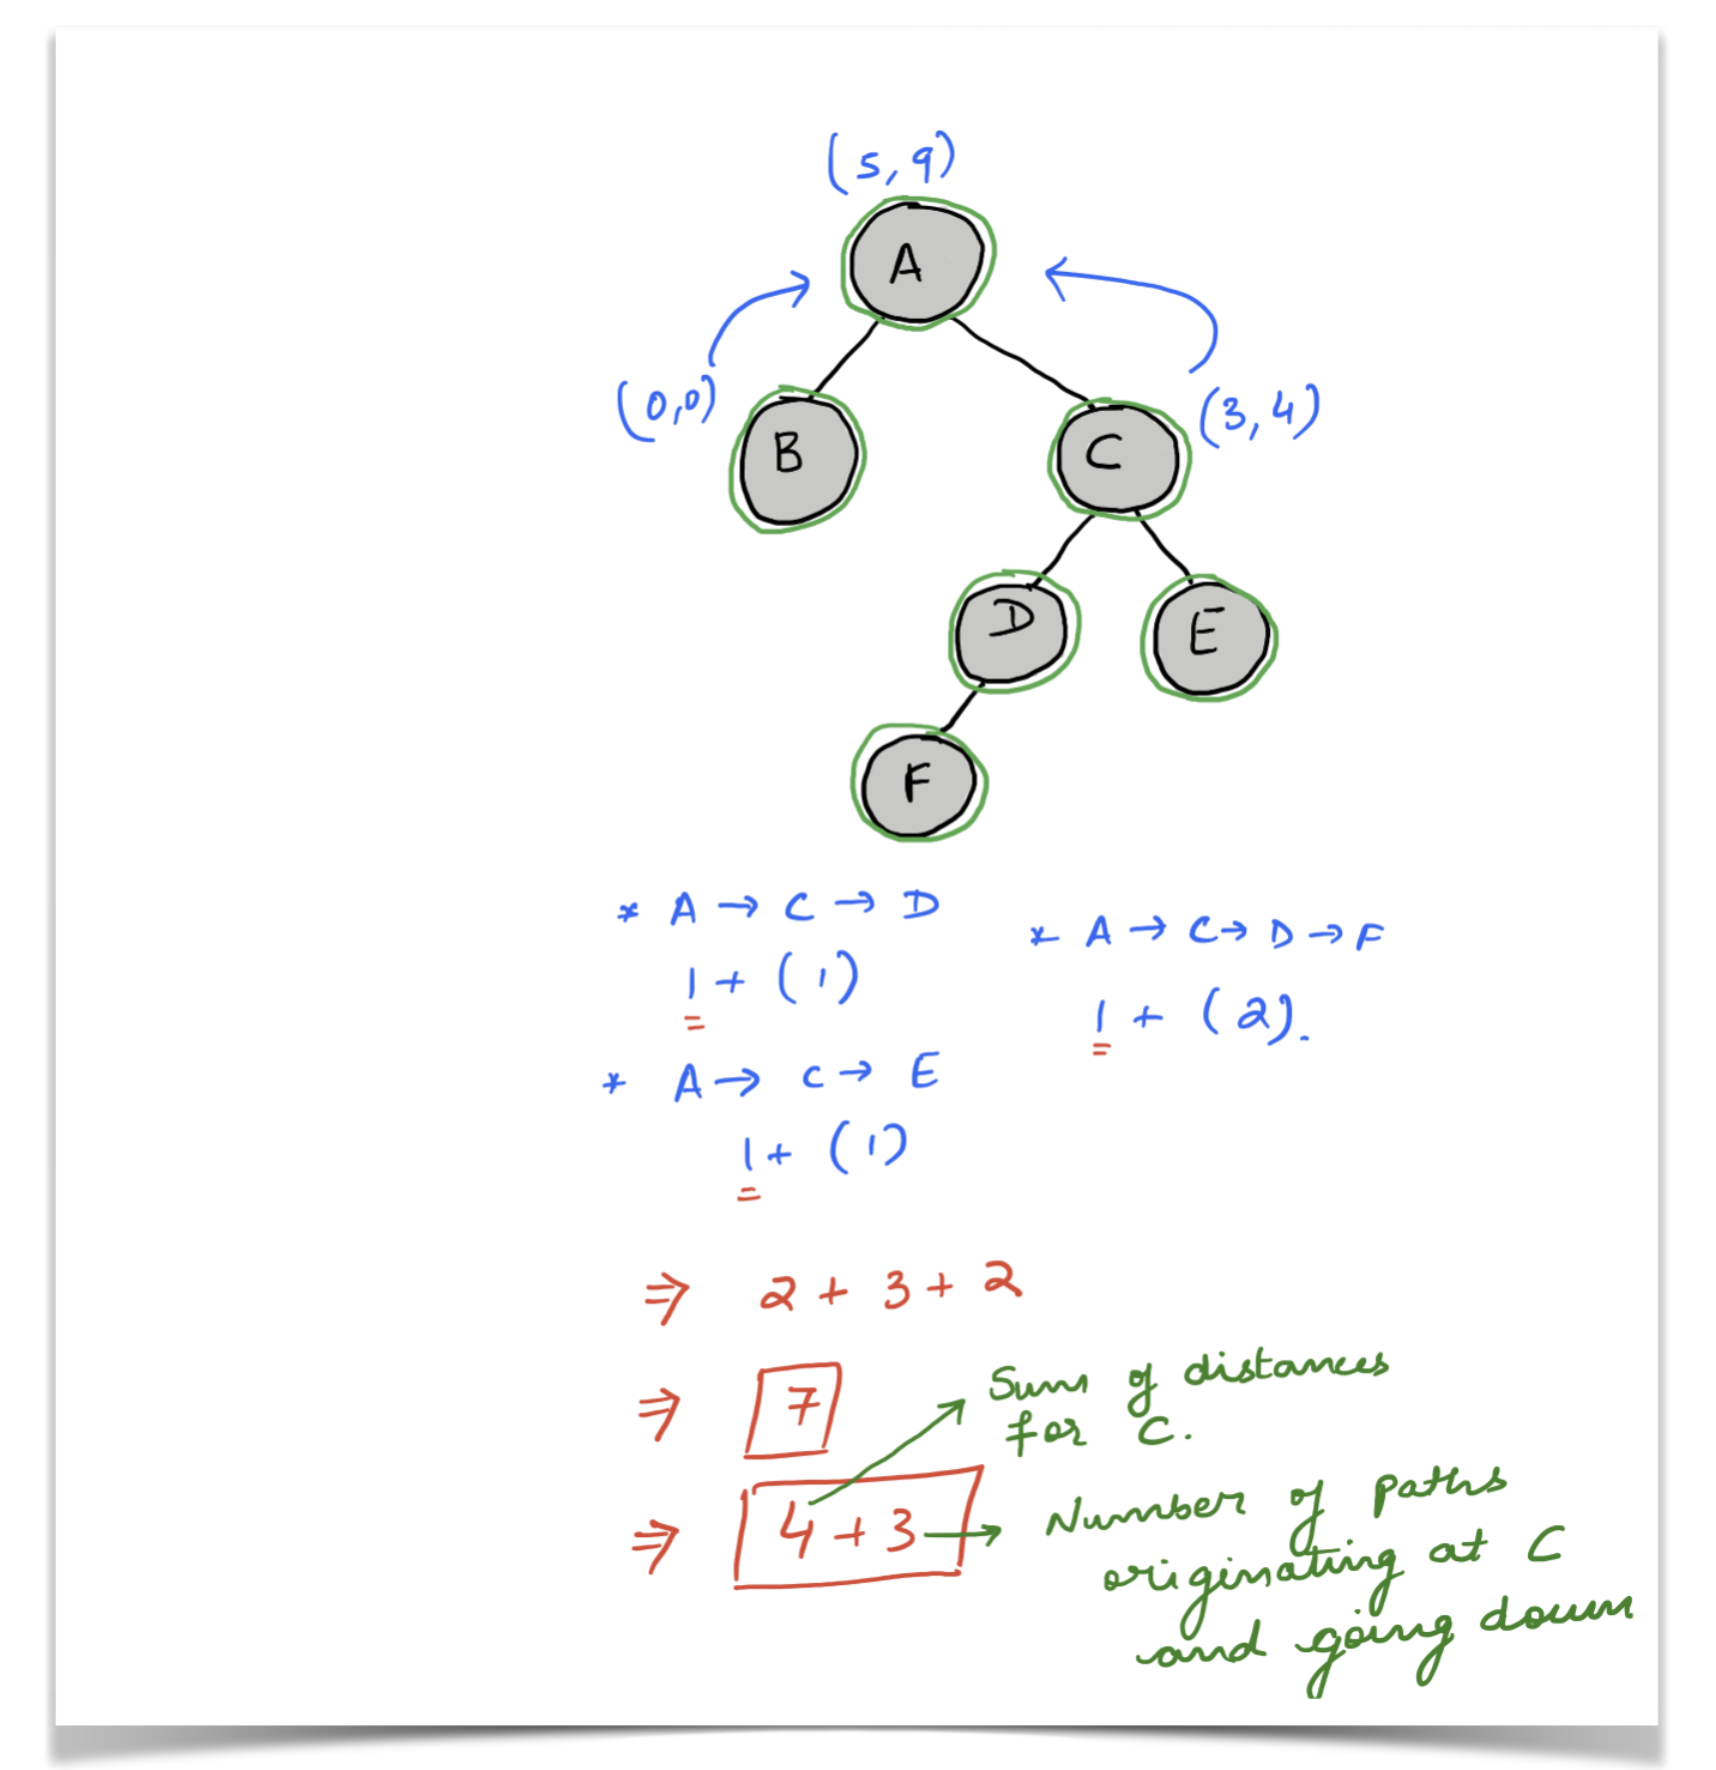 (5,9)
A
(0,0)
B
C
(3,4)
D
E
F
* A → C → D
1 + (1)
* A → C → D → F
1 + (2).
* A → C → E
1 + (1)
⇒ 2 + 3 + 2
⇒ 7
Sum of distances
for C.
⇒ 4 + 3
Number of paths
originating at C
and going down